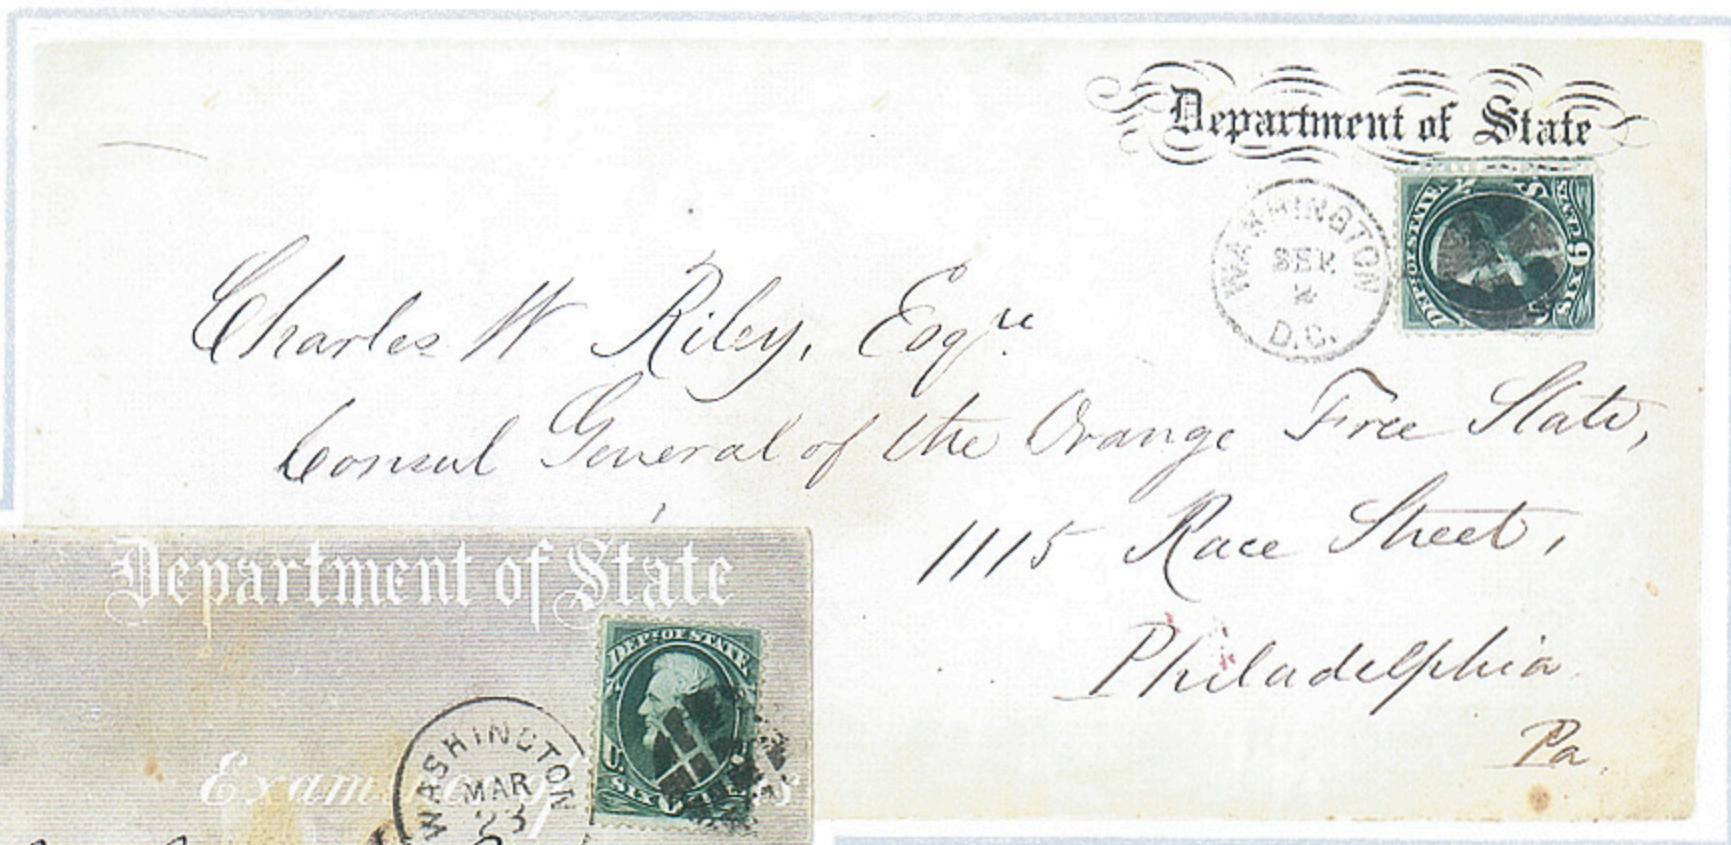 Department of State
WASHINGTON
SEP.
2
D.C.
DEPT. OF STATE
U. S.
6
Charles W Riley, Esqre.
Consul General of the Orange Free State,
1115 Race Street,
Philadelphia
Pa.
Department of State
DEPT. OF STATE
U.
SIX
WASHINGTON
MAR
23